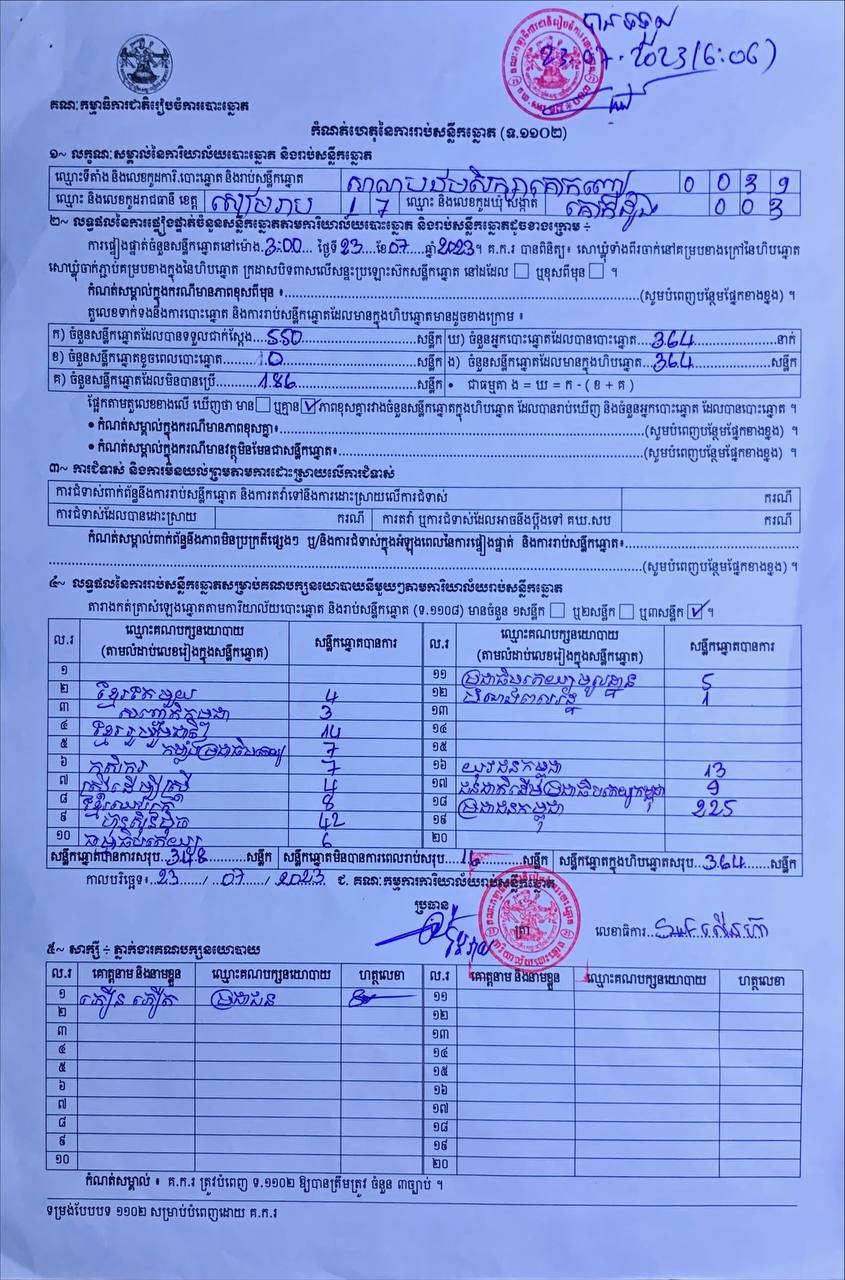 បានទទួល
23.07.2023 (6:06)
គណៈកម្មាធិការជាតិរៀបចំការបោះឆ្នោត
កំណត់ហេតុនៃការរាប់សន្លឹកឆ្នោត (ទ.១១០២)
១~ លក្ខណៈសម្គាល់នៃការិយាល័យបោះឆ្នោត និងរាប់សន្លឹកឆ្នោត
ឈ្មោះទីតាំង និងលេខកូដការិ.បោះឆ្នោត និងរាប់សន្លឹកឆ្នោត សាលាបឋមសិក្សាគោកញោ 0 0 3 9
ឈ្មោះ និងលេខកូដរាជធានី ខេត្ត សៀមរាប 1 7 ឈ្មោះ និងលេខកូដឃុំ សង្កាត់ គោកដូង 0 0 3
២~ លទ្ធផលនៃការផ្ទៀងផ្ទាត់ចំនួនសន្លឹកឆ្នោតតាមការិយាល័យបោះឆ្នោត និងរាប់សន្លឹកឆ្នោតដូចខាងក្រោម ÷
ការផ្ទៀងផ្ទាត់ចំនួនសន្លឹកឆ្នោតនៅម៉ោង.3:00.... ថ្ងៃទី23....ខែ07....ឆ្នាំ2023។ គ.ក.រ បានពិនិត្យ៖ សោឃ្មុំទាំងពីរចាក់នៅគម្របខាងក្រៅនៃហិបឆ្នោត
សោឃ្មុំចាក់ភ្ជាប់គម្របខាងក្នុងនៃហិបឆ្នោត ក្រដាសបិទពាសលើសន្ទះប្រឡោះស៊កសន្លឹកឆ្នោត នៅដដែល ☐ ឬខុសពីមុន ☐ ។
កំណត់សម្គាល់ក្នុងករណីមានភាពខុសពីមុន ៖......(សូមបំពេញបន្ថែមផ្នែកខាងខ្នង) ។
តួលេខទាក់ទងនឹងការបោះឆ្នោត និងការរាប់សន្លឹកឆ្នោតដែលមានក្នុងហិបឆ្នោតមានដូចខាងក្រោម ៖
ក) ចំនួនសន្លឹកឆ្នោតដែលបានទទួលជាក់ស្តែង....550......សន្លឹក ឃ) ចំនួនអ្នកបោះឆ្នោតដែលបានបោះឆ្នោត....364......នាក់
ខ) ចំនួនសន្លឹកឆ្នោតខូចពេលបោះឆ្នោត......0......សន្លឹក ង) ចំនួនសន្លឹកឆ្នោតដែលមានក្នុងហិបឆ្នោត....364......សន្លឹក
គ) ចំនួនសន្លឹកឆ្នោតដែលមិនបានប្រើ......186......សន្លឹក • ជាធម្មតា ង = ឃ = ក - ( ខ + គ )
ផ្អែកតាមតួលេខខាងលើ ឃើញថា មាន☐ ឬគ្មាន ☑ ភាពខុសគ្នារវាងចំនួនសន្លឹកឆ្នោតក្នុងហិបឆ្នោត ដែលបានរាប់ឃើញ និងចំនួនអ្នកបោះឆ្នោត ដែលបានបោះឆ្នោត ។
• កំណត់សម្គាល់ក្នុងករណីមានភាពខុសគ្នា៖......(សូមបំពេញបន្ថែមផ្នែកខាងខ្នង) ។
• កំណត់សម្គាល់ក្នុងករណីមានវត្ថុមិនមែនជាសន្លឹកឆ្នោត៖......(សូមបំពេញបន្ថែមផ្នែកខាងខ្នង) ។
៣~ ការជំទាស់ និងការមិនយល់ព្រមតាមការដោះស្រាយលើការជំទាស់
ការជំទាស់ពាក់ព័ន្ធនឹងការរាប់សន្លឹកឆ្នោត និងការតវ៉ាទៅនឹងការដោះស្រាយលើការជំទាស់ ករណី
ការជំទាស់ដែលបានដោះស្រាយ ករណី ការតវ៉ា ឬការជំទាស់ដែលអាចនឹងប្តឹងទៅ គឃ.សប ករណី
កំណត់សម្គាល់ពាក់ព័ន្ធនឹងភាពមិនប្រក្រតីផ្សេងៗ ឬ/និងការជំទាស់ក្នុងអំឡុងពេលនៃការផ្ទៀងផ្ទាត់ និងការរាប់សន្លឹកឆ្នោត៖......
......(សូមបំពេញបន្ថែមផ្នែកខាងខ្នង) ។
៤~ លទ្ធផលនៃការរាប់សន្លឹកឆ្នោតសម្រាប់គណបក្សនយោបាយនីមួយៗតាមការិយាល័យរាប់សន្លឹកឆ្នោត
តារាងកត់ត្រាសំឡេងឆ្នោតតាមការិយាល័យបោះឆ្នោត និងរាប់សន្លឹកឆ្នោត (ទ.១១០៨) មានចំនួន ១សន្លឹក ☐ ឬ២សន្លឹក ☐ ឬ៣សន្លឹក ☑ ។
ល.រ ឈ្មោះគណបក្សនយោបាយ (តាមលំដាប់លេខរៀងក្នុងសន្លឹកឆ្នោត) សន្លឹកឆ្នោតបានការ ល.រ ឈ្មោះគណបក្សនយោបាយ (តាមលំដាប់លេខរៀងក្នុងសន្លឹកឆ្នោត) សន្លឹកឆ្នោតបានការ
១ ១១ ប្រជាធិបតេយ្យមូលដ្ឋាន 5
២ ខ្មែរតែមួយ 4 ១២ 1
៣ សញ្ជាតិកម្ពុជា 3 ១៣
៤ ខ្មែររួបរួមជាតិ 14 ១៤
៥ កម្លាំងប្រជាធិបតេយ្យ 7 ១៥
៦ កសិករ 7 ១៦ យុវជនកម្ពុជា 13
៧ ស្ត្រីដើម្បីស្ត្រី 4 ១៧ ជនជាតិដើមប្រជាធិបតេយ្យកម្ពុជា 9
៨ ខ្មែរឈប់ក្រ 8 ១៨ ប្រជាជនកម្ពុជា 225
៩ ហ្វ៊ុនស៊ិនប៉ិច 42 ១៩
១០ ធម្មាធិបតេយ្យ 6 ២០
សន្លឹកឆ្នោតបានការសរុប..348......សន្លឹក សន្លឹកឆ្នោតមិនបានការពេលរាប់សរុប..16......សន្លឹក សន្លឹកឆ្នោតក្នុងហិបឆ្នោតសរុប..364......សន្លឹក
កាលបរិច្ឆេទ៖..23....../..07..../..2023 ជ. គណៈកម្មការការិយាល័យរាប់សន្លឹកឆ្នោត
ប្រធាន ត្រា លេខាធិការ
៥~ សាក្សី ÷ ភ្នាក់ងារគណបក្សនយោបាយ
ល.រ គោត្តនាម និងនាមខ្លួន ឈ្មោះគណបក្សនយោបាយ ហត្ថលេខា ល.រ គោត្តនាម និងនាមខ្លួន ឈ្មោះគណបក្សនយោបាយ ហត្ថលេខា
១ ភឿន ភឿត ប្រជាជន ១១
២ ១២
៣ ១៣
៤ ១៤
៥ ១៥
៦ ១៦
៧ ១៧
៨ ១៨
៩ ១៩
១០ ២០
កំណត់សម្គាល់ ៖ គ.ក.រ ត្រូវបំពេញ ទ.១១០២ ឱ្យបានត្រឹមត្រូវ ចំនួន ៣ច្បាប់ ។
ទម្រង់បែបបទ ១១០២ សម្រាប់បំពេញដោយ គ.ក.រ